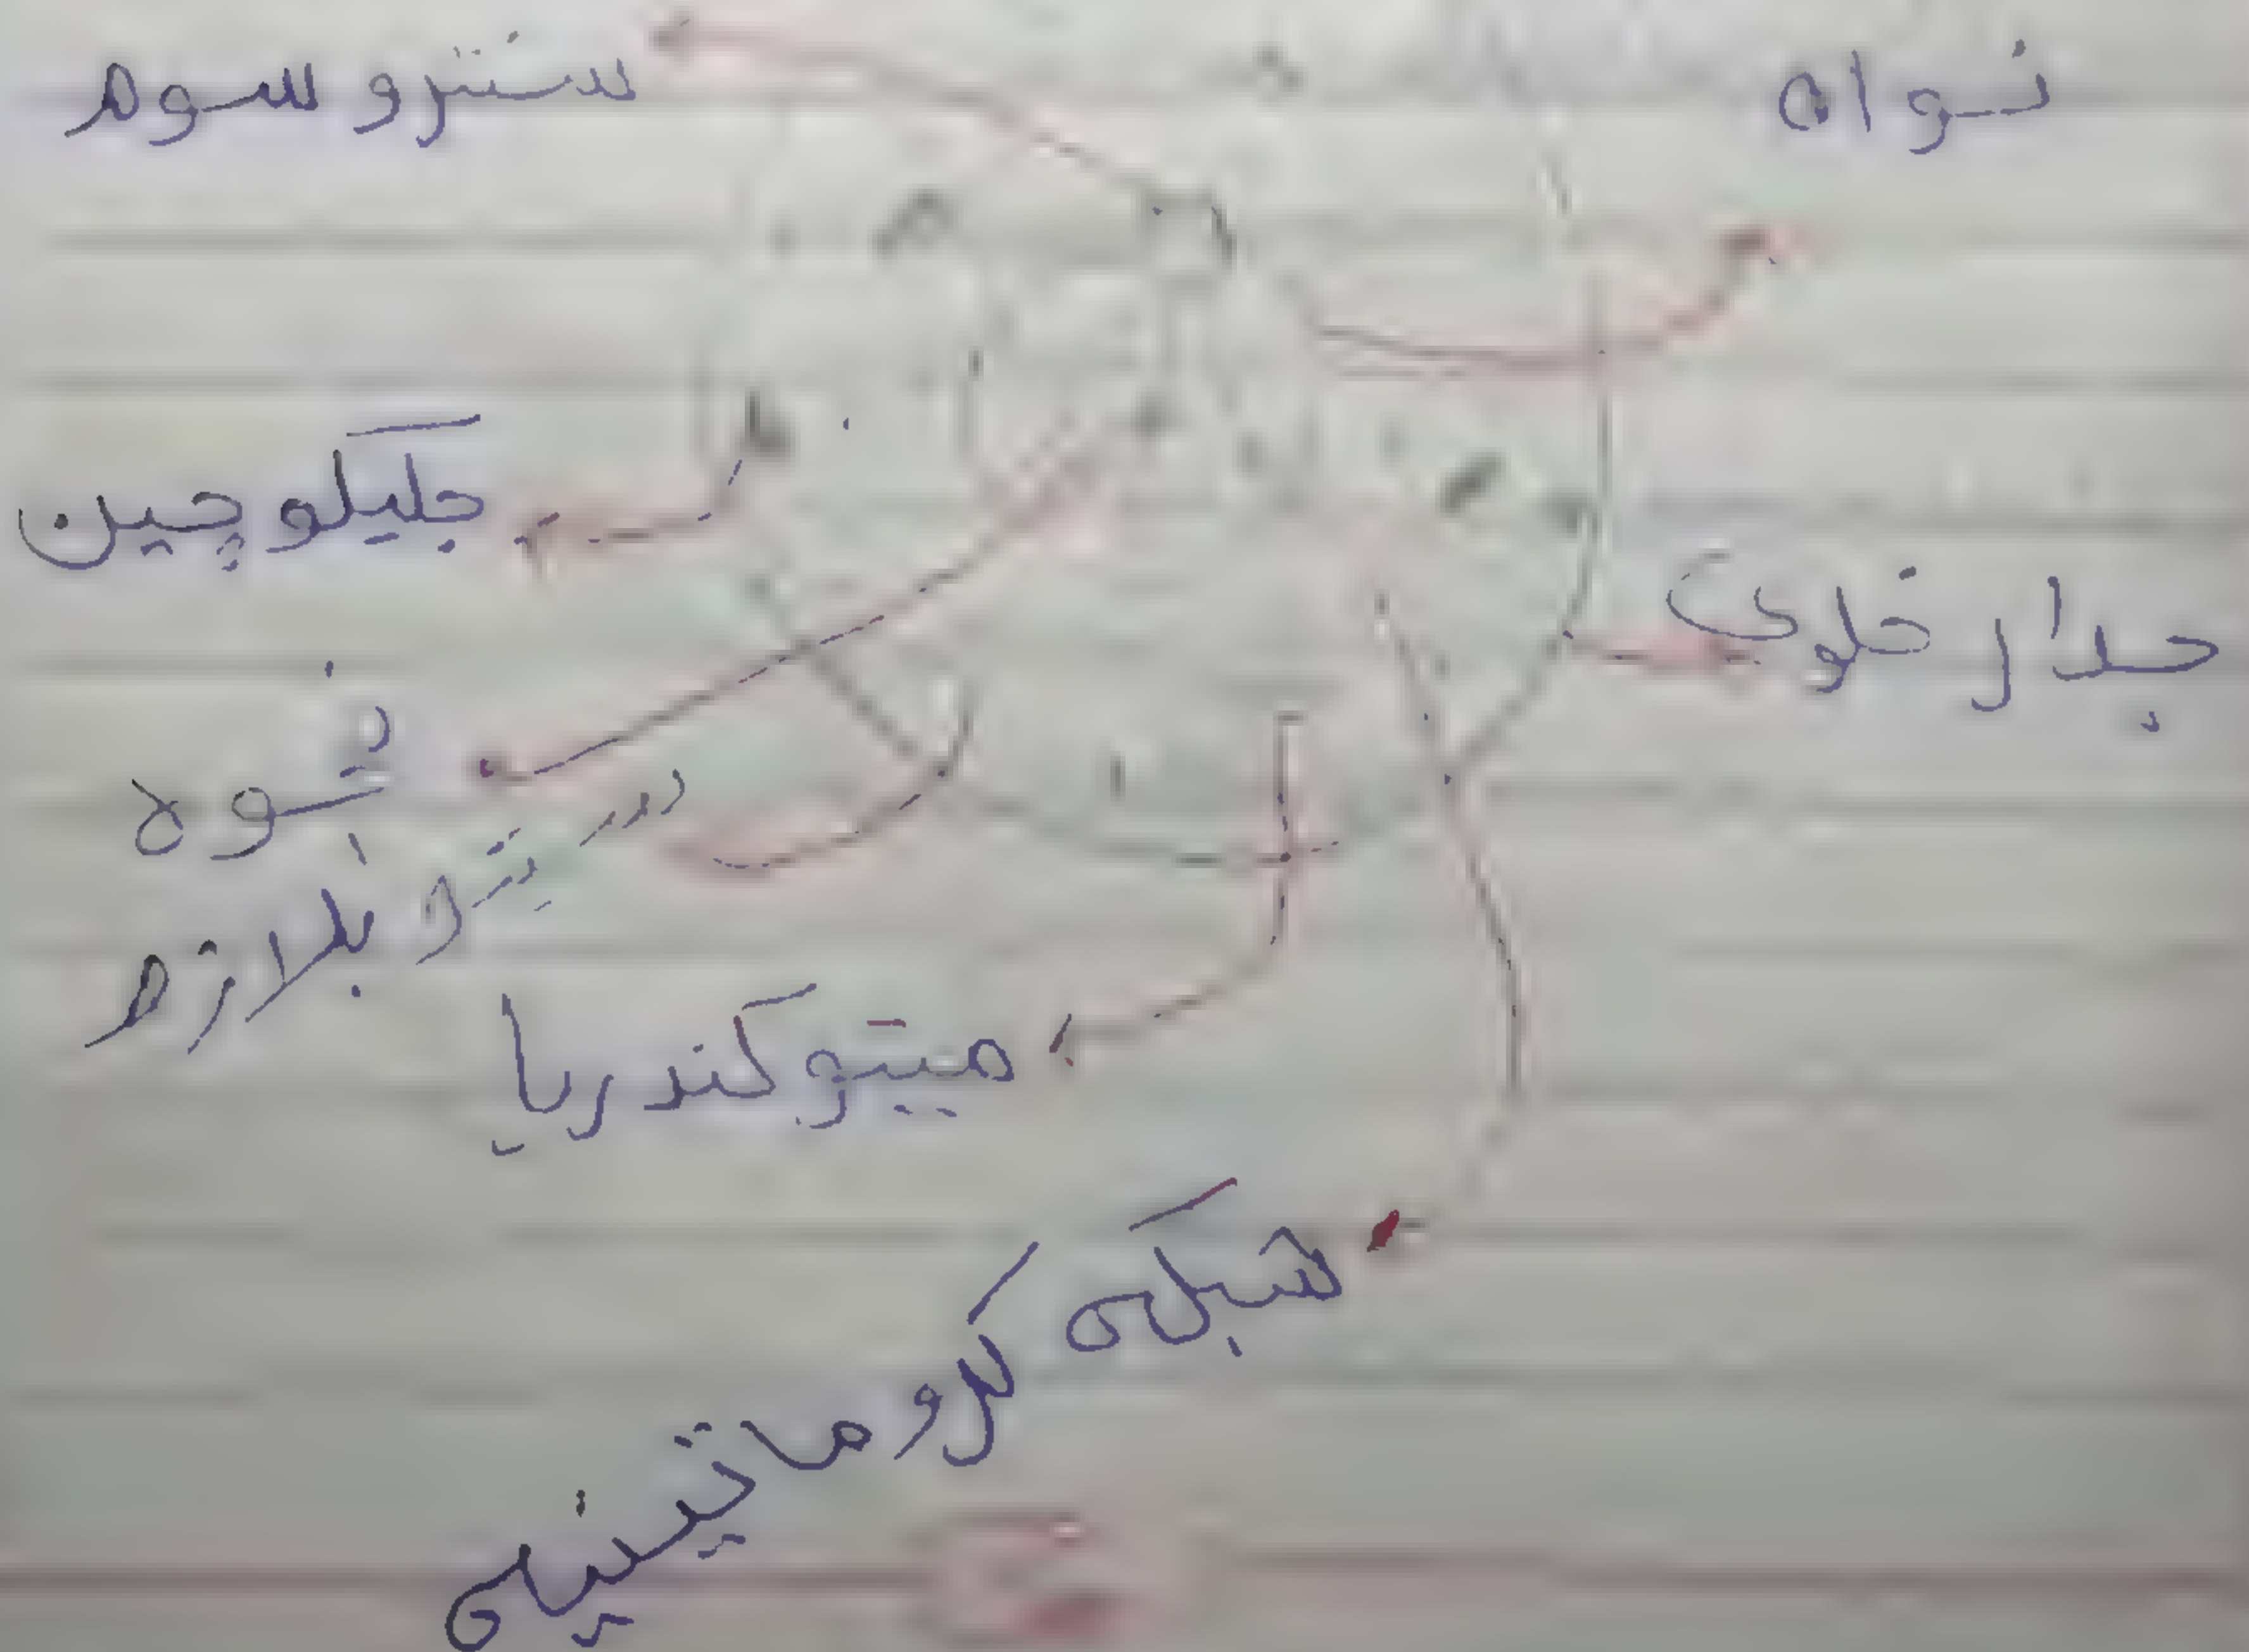 سنتروسوم
نواه
جليكوچين
جدار خلوي
فجوه
سيتوبلازم
ميتوكندريا
شبكه كروماتينيه